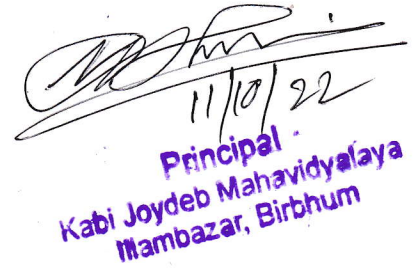 11/10/22
Principal
Kabi Joydeb Mahavidyalaya
Illambazar, Birbhum